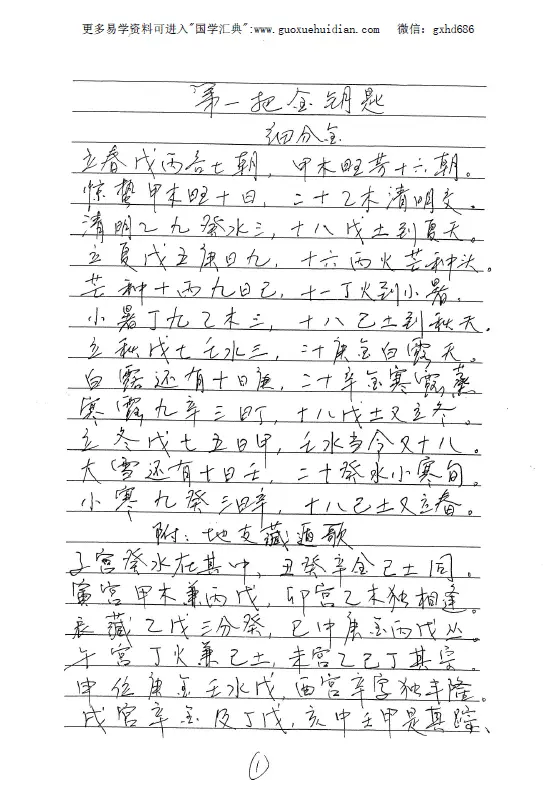 更多易学资料可进入"国学汇典":www.guoxuehuidian.com 微信：gxhd686
第一把金钥匙
细分金
立春戊丙各七朝，甲木旺芳十六朝。
惊蛰甲木旺十日，二十乙木清明交。
清明乙九癸水三，十八戊土到夏天。
立夏戊五庚日九，十六丙火芒种头。
芒种十丙九日己，十一丁火到小暑.
小暑丁九乙木三，十八己土到秋天.
立秋戊七壬水三，二十庚金白露天。
白露还有十日庚，二十辛金寒露蒸
寒露九辛三日丁，十八戊土又立冬。
立冬戊七五日甲，壬水当令又十八。
大雪还有十日壬，二十癸水小寒旬。
小寒九癸三日辛，十八己土又立春。
附：地支藏遁歌
子宫癸水在其中，丑癸辛金己土同。
寅宫甲木兼丙戊，卯宫乙木独相逢。
辰藏乙戊三分癸，巳中庚金丙戊丛。
午宫丁火兼己土，未宫乙己丁其宗。
申位庚金壬水戊，酉宫辛字独丰隆。
戌宫辛金及丁戊，亥中壬甲是真踪、
①